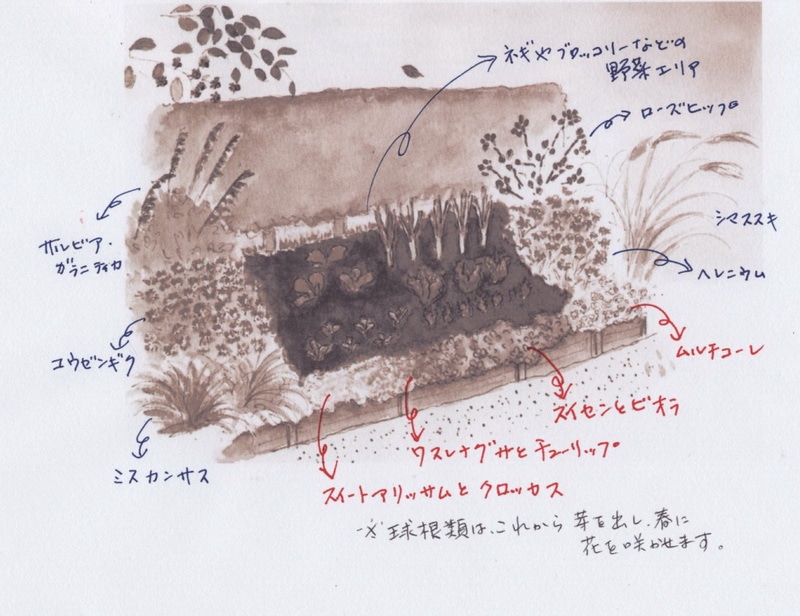 ネギやブロッコリーなどの
野菜エリア
ローズヒップ
シマススキ
サルビア・
ガラニティカ
ヘレニウム
ユウゼンギク
ムルチコーレ
スイセンとビオラ
ワスレナグサとチューリップ
ミスカンサス
スイートアリッサムとクロッカス
※球根類は、これから芽を出し、春に
花を咲かせます。